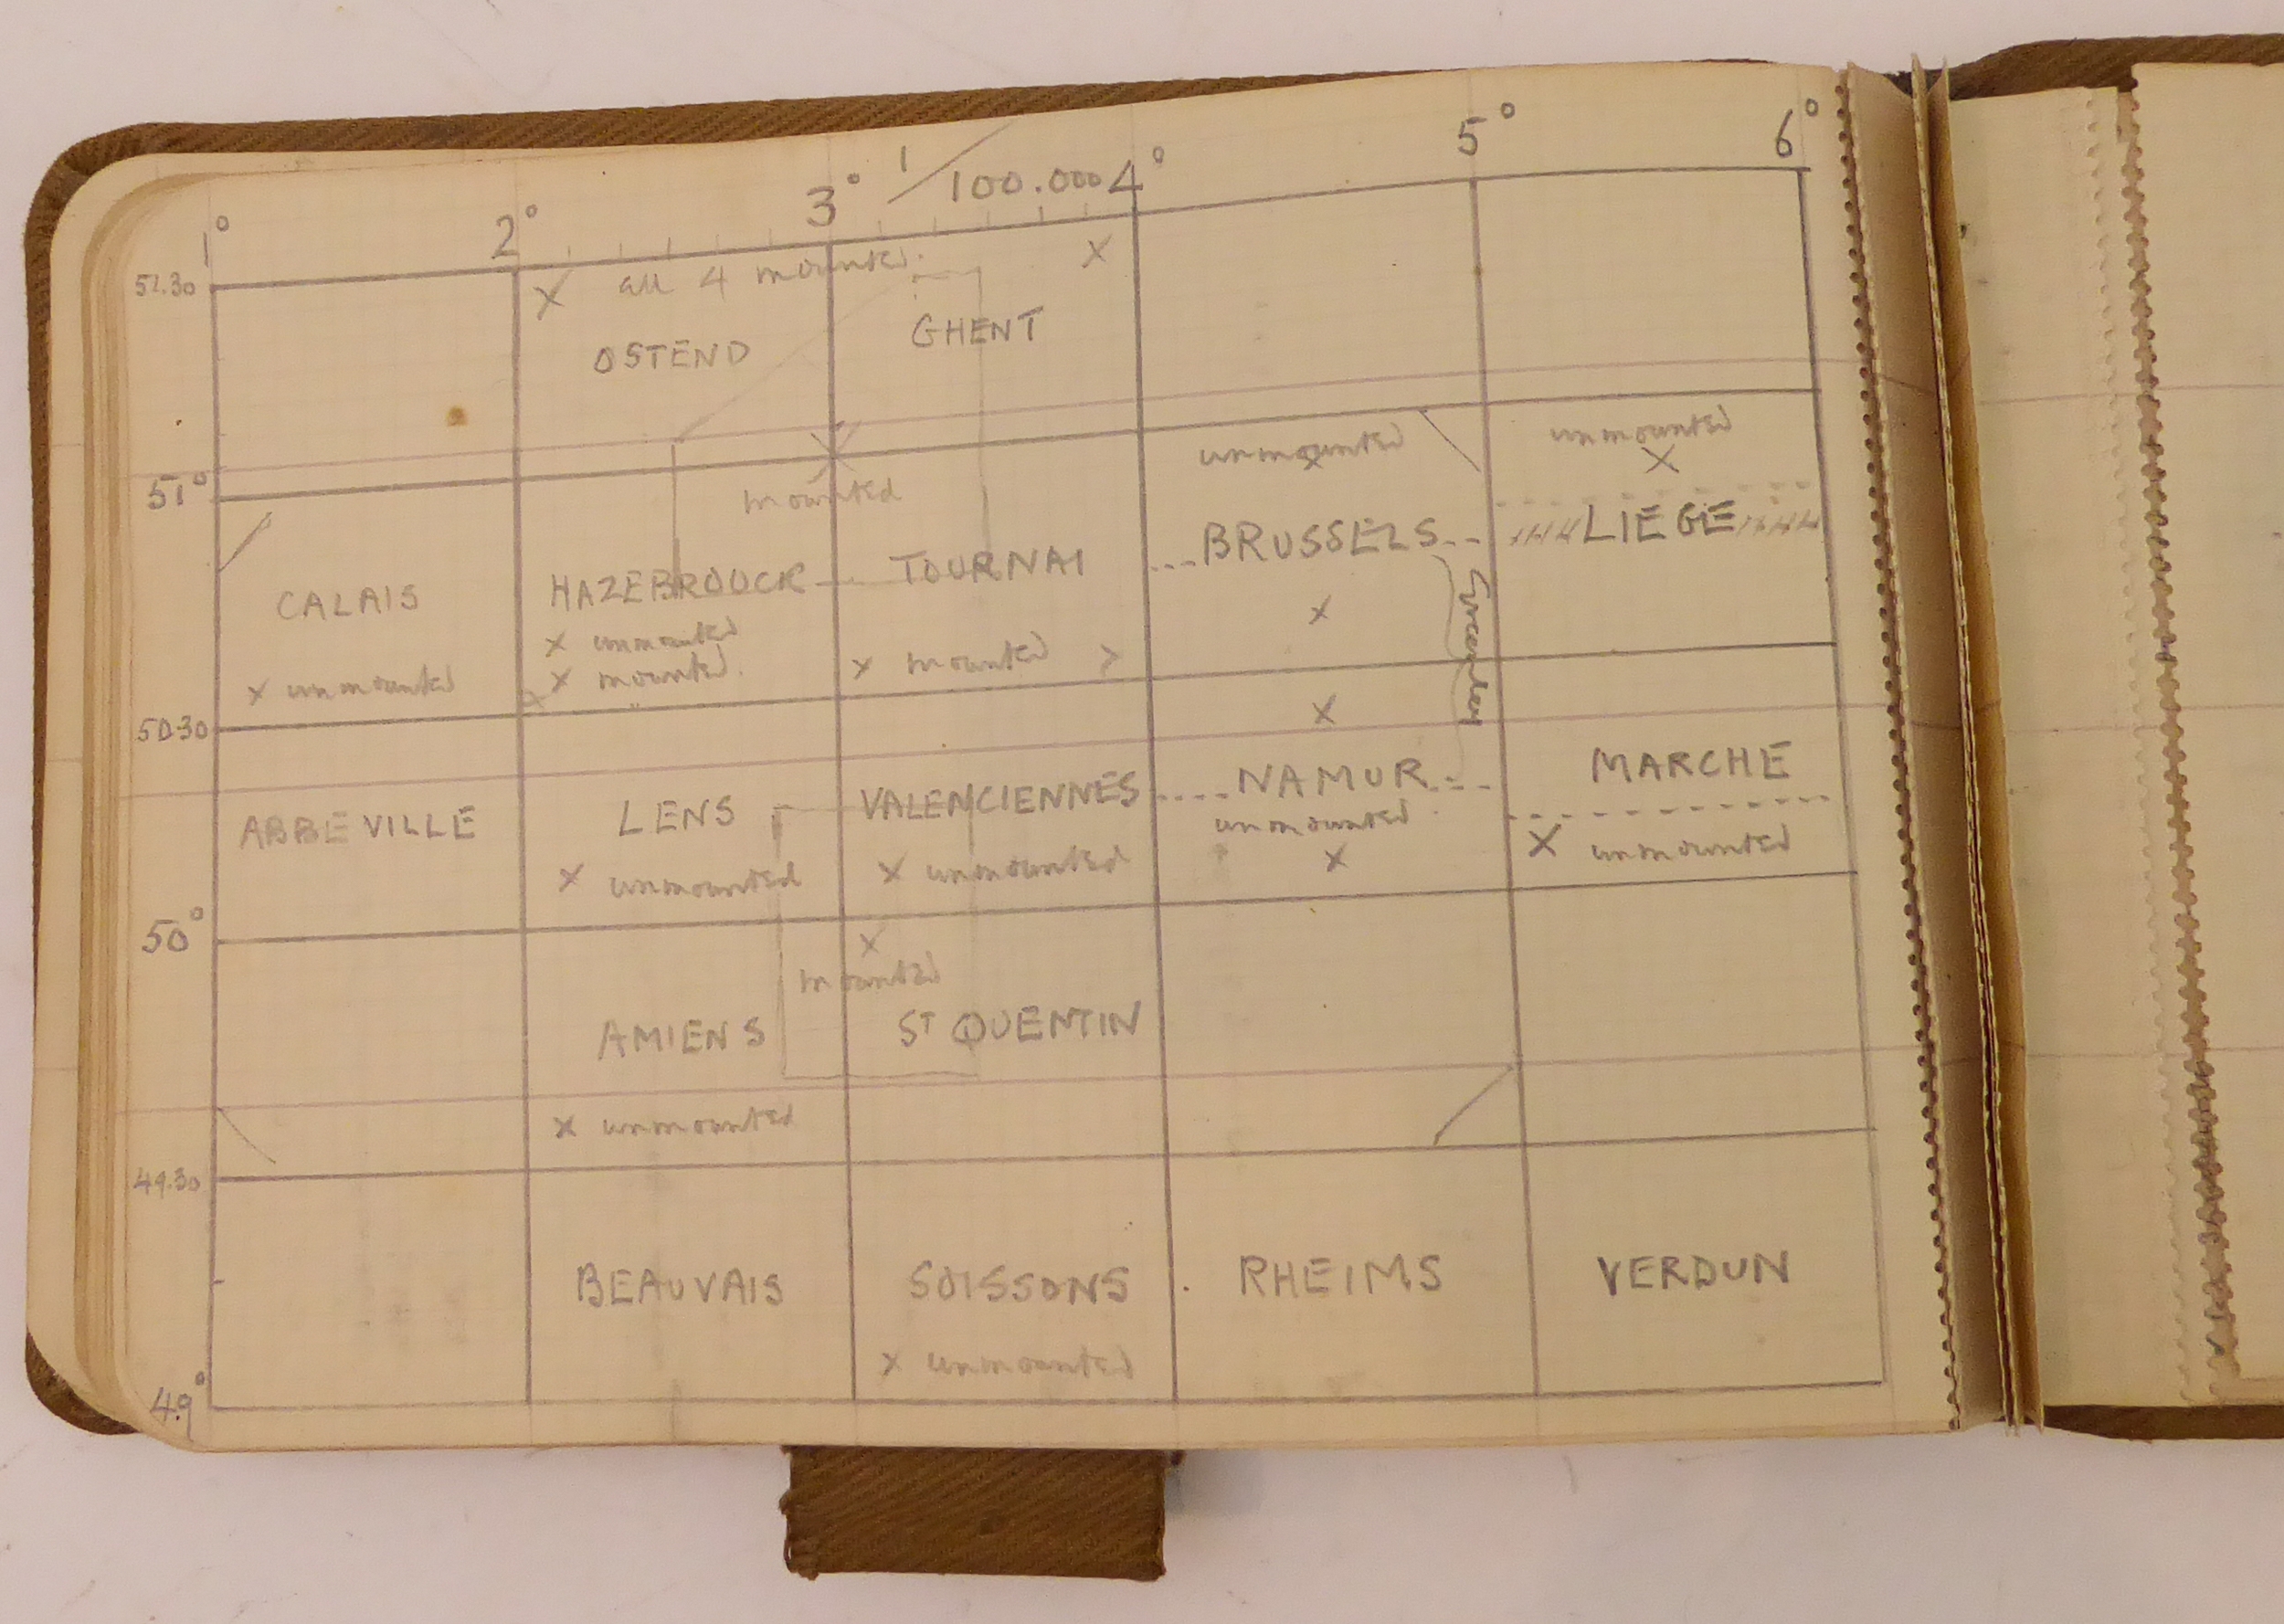 1/100.000
1° 2° 3° 4° 5° 6°
51.30
x all 4 mounted. x
OSTEND GHENT
51°
x
mounted
unmounted x
unmounted x
CALAIS HAZEBROUCK TOURNAI BRUSSELS LIEGE
x unmounted
x unmounted
x mounted.
x "
x mounted >
x
50.30
x
ABBEVILLE LENS VALENCIENNES NAMUR MARCHE
x unmounted
x unmounted
unmounted x
x unmounted
50°
x
mounted
AMIENS ST QUENTIN
x unmounted
49.30
BEAUVAIS SOISSONS RHEIMS VERDUN
x unmounted
49°